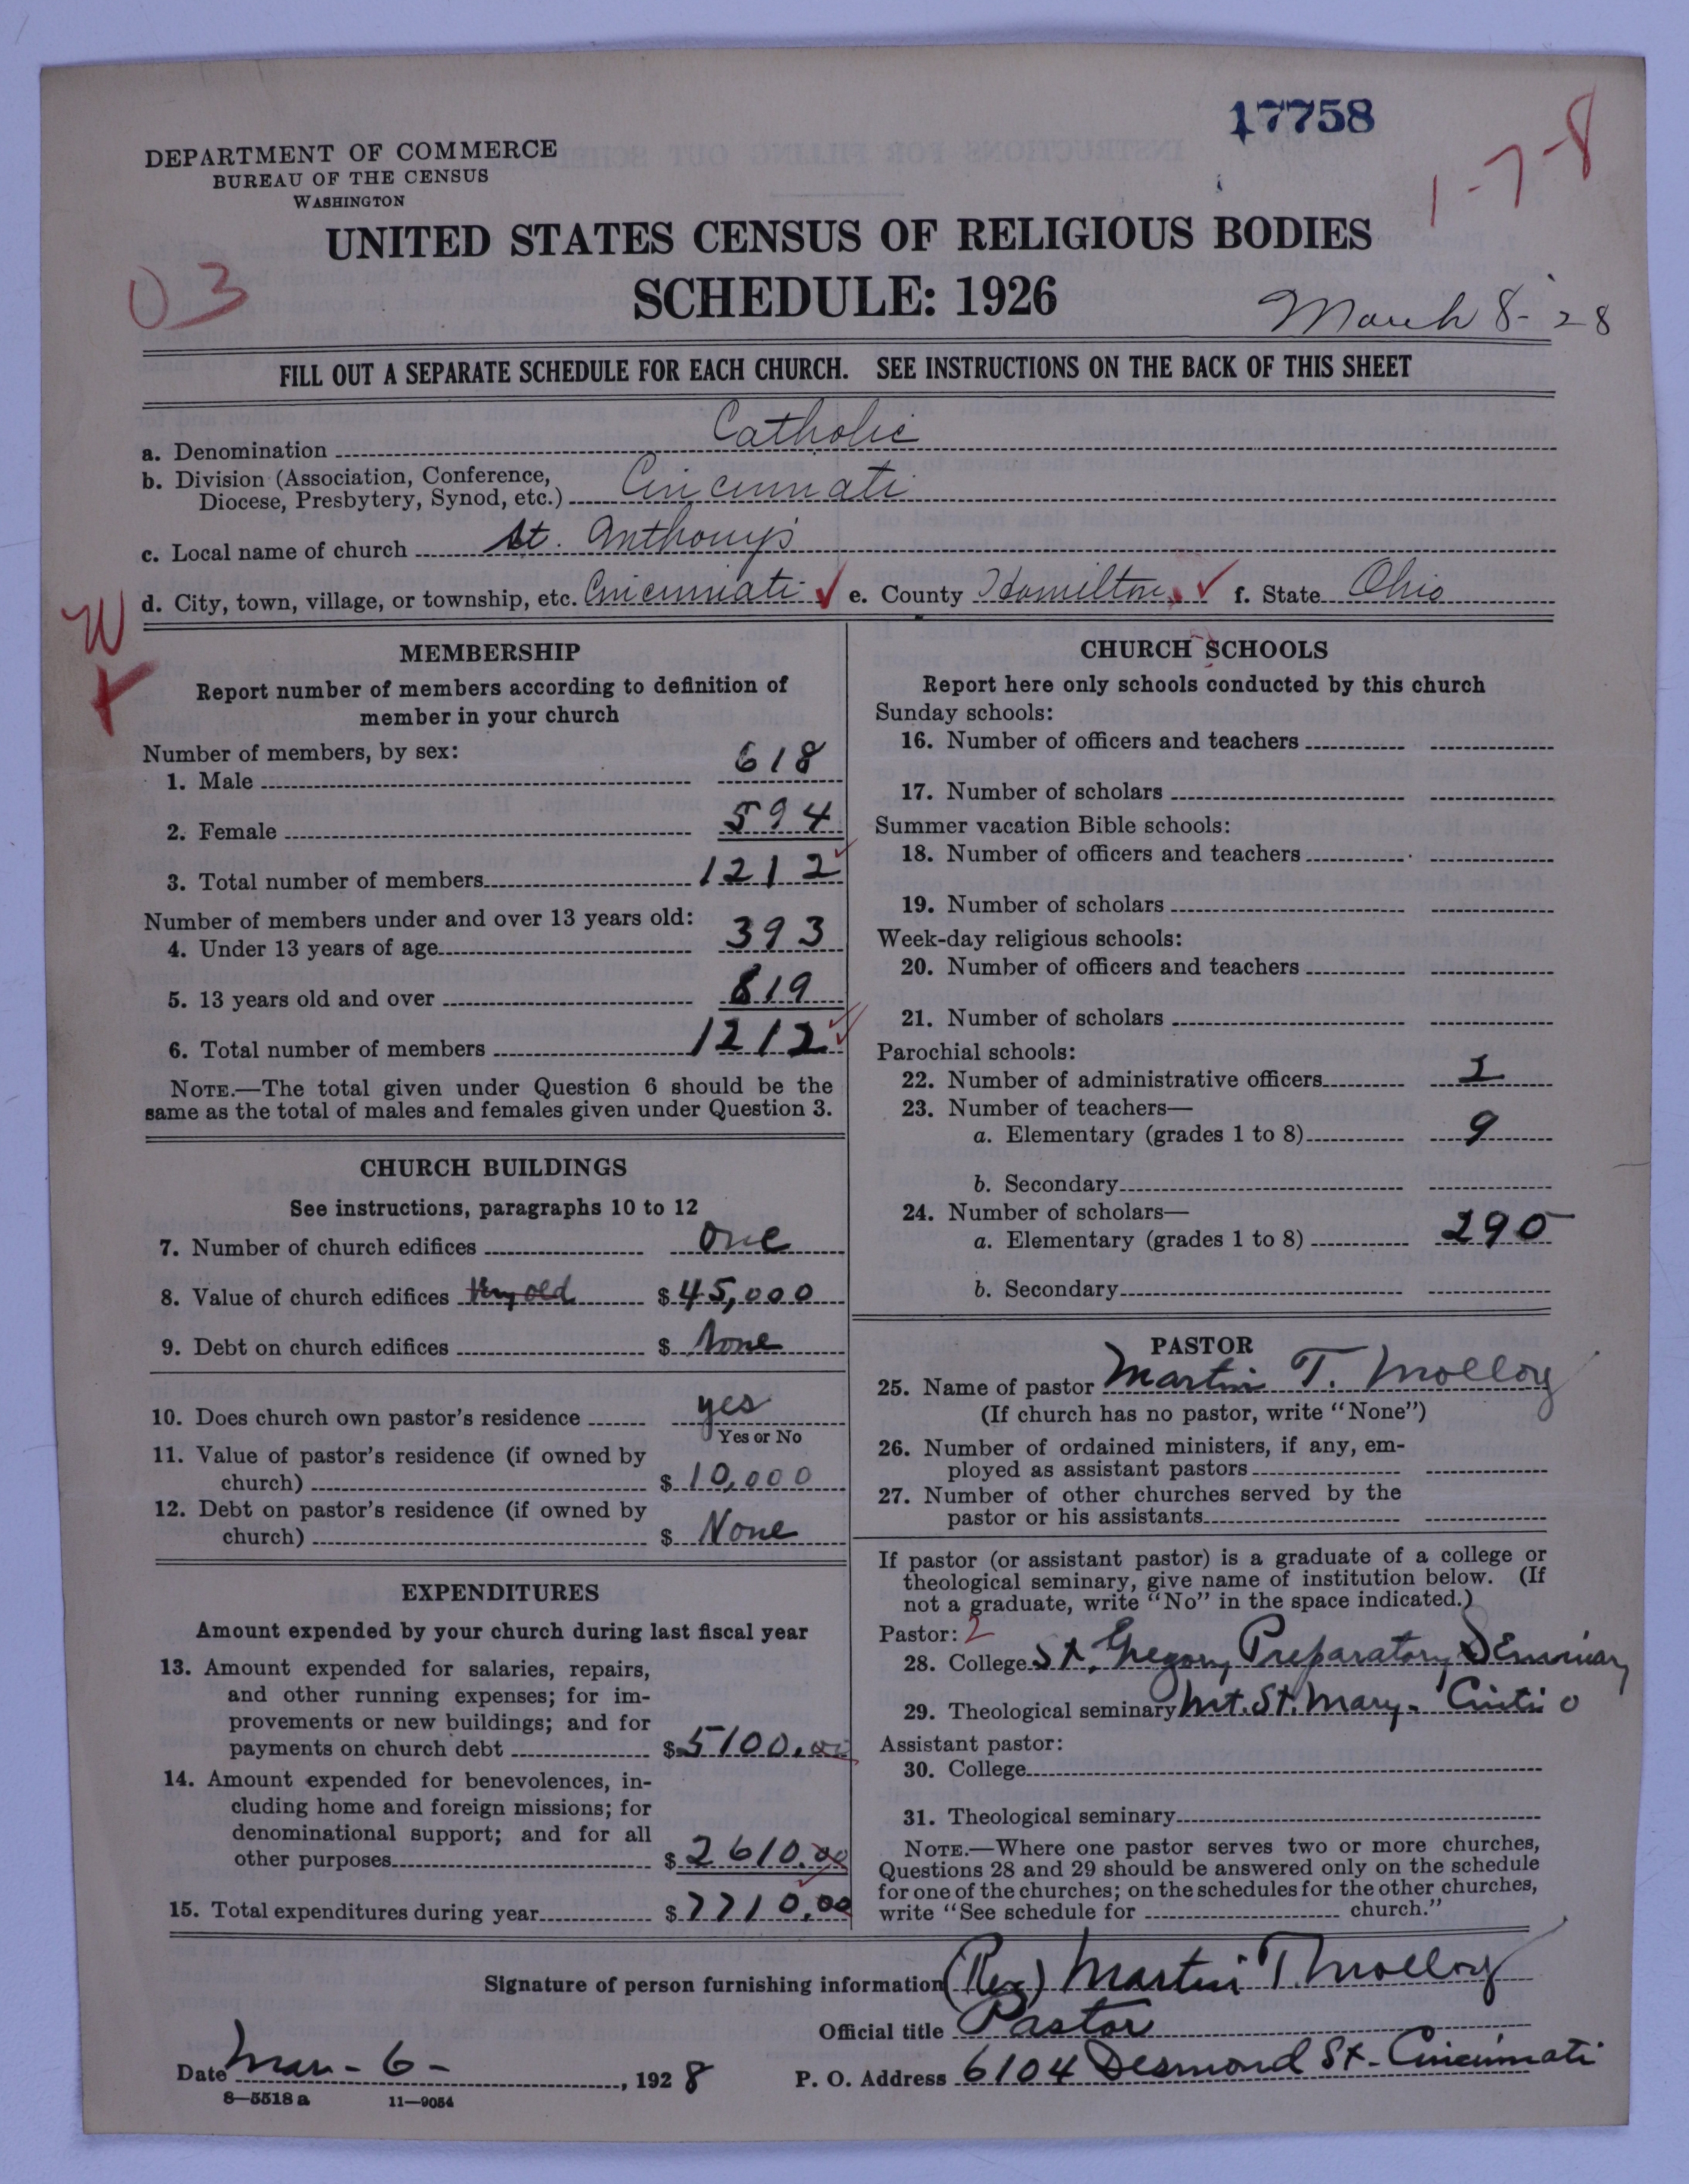 17758
1-7-8
DEPARTMENT OF COMMERCE
BUREAU OF THE CENSUS
WASHINGTON
UNITED STATES CENSUS OF RELIGIOUS BODIES
03
SCHEDULE: 1926
March 8-'28
FILL OUT A SEPARATE SCHEDULE FOR EACH CHURCH. SEE INSTRUCTIONS ON THE BACK OF THIS SHEET
a. Denomination Catholic
b. Division (Association, Conference,
Diocese, Presbytery, Synod, etc.) Cincinnati
c. Local name of church St. Anthony's
d. City, town, village, or township, etc. Cincinnati ✓ e. County Hamilton ✓ f. State Ohio
W
MEMBERSHIP
Report number of members according to definition of
member in your church
Number of members, by sex:
1. Male 618
2. Female 594
3. Total number of members 1212
Number of members under and over 13 years old:
4. Under 13 years of age 393
5. 13 years old and over 819
6. Total number of members 1212
NOTE.—The total given under Question 6 should be the
same as the total of males and females given under Question 3.
CHURCH BUILDINGS
See instructions, paragraphs 10 to 12
7. Number of church edifices One
8. Value of church edifices Very old $45,000
9. Debt on church edifices $ None
10. Does church own pastor's residence yes
Yes or No
11. Value of pastor's residence (if owned by
church) $10,000
12. Debt on pastor's residence (if owned by
church) $ None
EXPENDITURES
Amount expended by your church during last fiscal year
13. Amount expended for salaries, repairs,
and other running expenses; for im-
provements or new buildings; and for
payments on church debt $5100.00
14. Amount expended for benevolences, in-
cluding home and foreign missions; for
denominational support; and for all
other purposes $2610.00
15. Total expenditures during year $7710.00
CHURCH SCHOOLS
Report here only schools conducted by this church
Sunday schools:
16. Number of officers and teachers
17. Number of scholars
Summer vacation Bible schools:
18. Number of officers and teachers
19. Number of scholars
Week-day religious schools:
20. Number of officers and teachers
21. Number of scholars
Parochial schools:
22. Number of administrative officers 1
23. Number of teachers—
a. Elementary (grades 1 to 8) 9
b. Secondary
24. Number of scholars—
a. Elementary (grades 1 to 8) 290
b. Secondary
PASTOR
25. Name of pastor Martin T. Molloy
(If church has no pastor, write "None")
26. Number of ordained ministers, if any, em-
ployed as assistant pastors
27. Number of other churches served by the
pastor or his assistants
If pastor (or assistant pastor) is a graduate of a college or
theological seminary, give name of institution below. (If
not a graduate, write "No" in the space indicated.)
Pastor: 2
28. College St. Gregory Preparatory Seminary
29. Theological seminary Mt. St. Mary - Cinti O
Assistant pastor:
30. College
31. Theological seminary
NOTE.—Where one pastor serves two or more churches,
Questions 28 and 29 should be answered only on the schedule
for one of the churches; on the schedules for the other churches,
write "See schedule for church."
Signature of person furnishing information (Rev) Martin T. Molloy
Official title Pastor
Date Mar-6-, 1928 P. O. Address 6104 Desmond St- Cincinnati
8—5518 a 11—9054